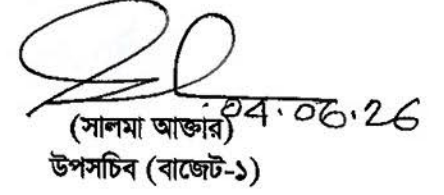 04.06.26
(সালমা আক্তার)
উপসচিব (বাজেট-১)